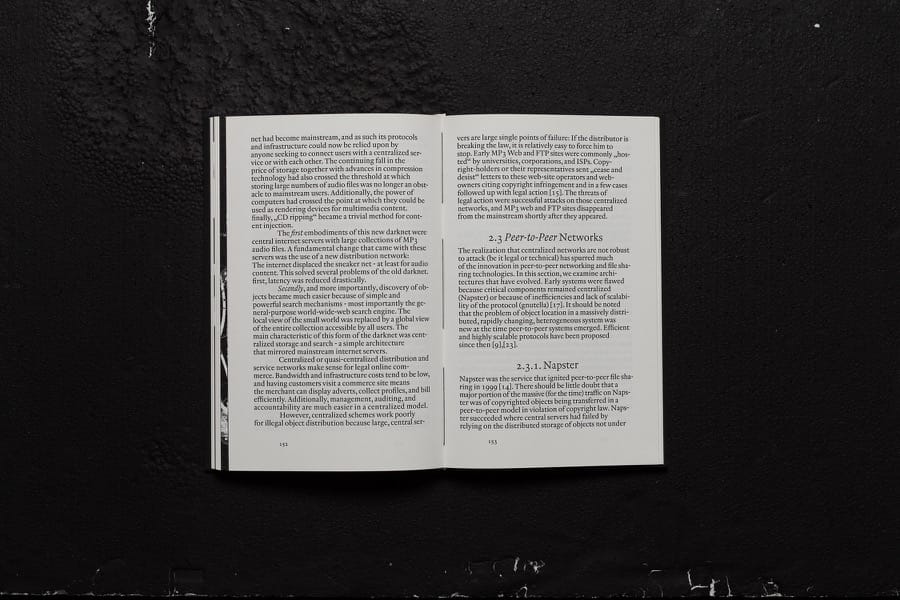 net had become mainstream, and as such its protocols
and infrastructure could now be relied upon by
anyone seeking to connect users with a centralized ser-
vice or with each other. The continuing fall in the
price of storage together with advances in compression
technology had also crossed the threshold at which
storing large numbers of audio files was no longer an obst-
acle to mainstream users. Additionally, the power of
computers had crossed the point at which they could be
used as rendering devices for multimedia content.
finally, „CD ripping“ became a trivial method for cont-
ent injection.
The first embodiments of this new darknet were
central internet servers with large collections of MP3
audio files. A fundamental change that came with these
servers was the use of a new distribution network:
The internet displaced the sneaker net - at least for audio
content. This solved several problems of the old darknet.
first, latency was reduced drastically.
Secondly, and more importantly, discovery of ob-
jects became much easier because of simple and
powerful search mechanisms - most importantly the ge-
neral-purpose world-wide-web search engine. The
local view of the small world was replaced by a global view
of the entire collection accessible by all users. The
main characteristic of this form of the darknet was cent-
ralized storage and search - a simple architecture
that mirrored mainstream internet servers.
Centralized or quasi-centralized distribution and
service networks make sense for legal online com-
merce. Bandwidth and infrastructure costs tend to be low,
and having customers visit a commerce site means
the merchant can display adverts, collect profiles, and bill
efficiently. Additionally, management, auditing, and
accountability are much easier in a centralized model.
However, centralized schemes work poorly
for illegal object distribution because large, central ser-
152
vers are large single points of failure: If the distributor is
breaking the law, it is relatively easy to force him to
stop. Early MP3 Web and FTP sites were commonly „hos-
ted“ by universities, corporations, and ISPs. Copy-
right-holders or their representatives sent „cease and
desist“ letters to these web-site operators and web-
owners citing copyright infringement and in a few cases
followed up with legal action [15]. The threats of
legal action were successful attacks on those centralized
networks, and MP3 web and FTP sites disappeared
from the mainstream shortly after they appeared.
2.3 Peer-to-Peer Networks
The realization that centralized networks are not robust
to attack (be it legal or technical) has spurred much
of the innovation in peer-to-peer networking and file sha-
ring technologies. In this section, we examine archi-
tectures that have evolved. Early systems were flawed
because critical components remained centralized
(Napster) or because of inefficiencies and lack of scalabi-
lity of the protocol (gnutella) [17]. It should be noted
that the problem of object location in a massively distri-
buted, rapidly changing, heterogeneous system was
new at the time peer-to-peer systems emerged. Efficient
and highly scalable protocols have been proposed
since then [9],[23].
2.3.1. Napster
Napster was the service that ignited peer-to-peer file sha-
ring in 1999 [14]. There should be little doubt that a
major portion of the massive (for the time) traffic on Naps-
ter was of copyrighted objects being transferred in a
peer-to-peer model in violation of copyright law. Naps-
ter succeeded where central servers had failed by
relying on the distributed storage of objects not under
153